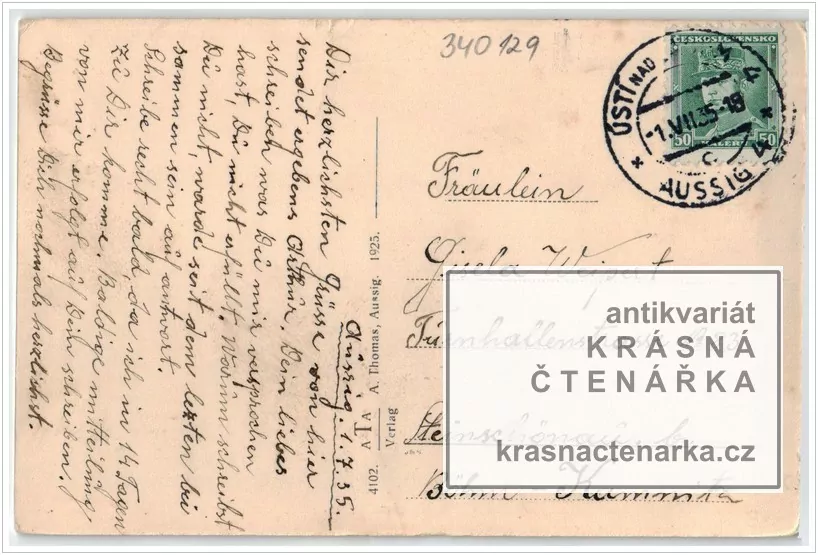 340129
ČESKOSLOVENSKO
50 HALERU 50
ÚSTÍ NAD
1.VII.35-18
C
* AUSSIG *
Aussig. 1.7.35.
Dir herzlichsten Grüsse von hier
sendet ergebens Arthur. Dein liebes
schreiben was Du mir versprochen
hast, Du nicht erfüllt. Warum schreibst
Du nicht, warde seit dem lezten bei
sammen sein auf antwort.
Schreibe recht bald, da ich in 14 Tagen
zu Dir komme. Baldige mitteilung
von mir erfolgt auf Dein schreiben.
Begrüsse Dich nochmals herzlichst.
4102. A T A A. Thomas, Aussig. 1925.
Verlag
Fräulein
Gisela Weipert
Turnhallenstrasse
Steinschönau b.
Böhm Kamnitz
antikvariát
KRÁSNÁ
ČTENÁŘKA
krasnactenarka.cz